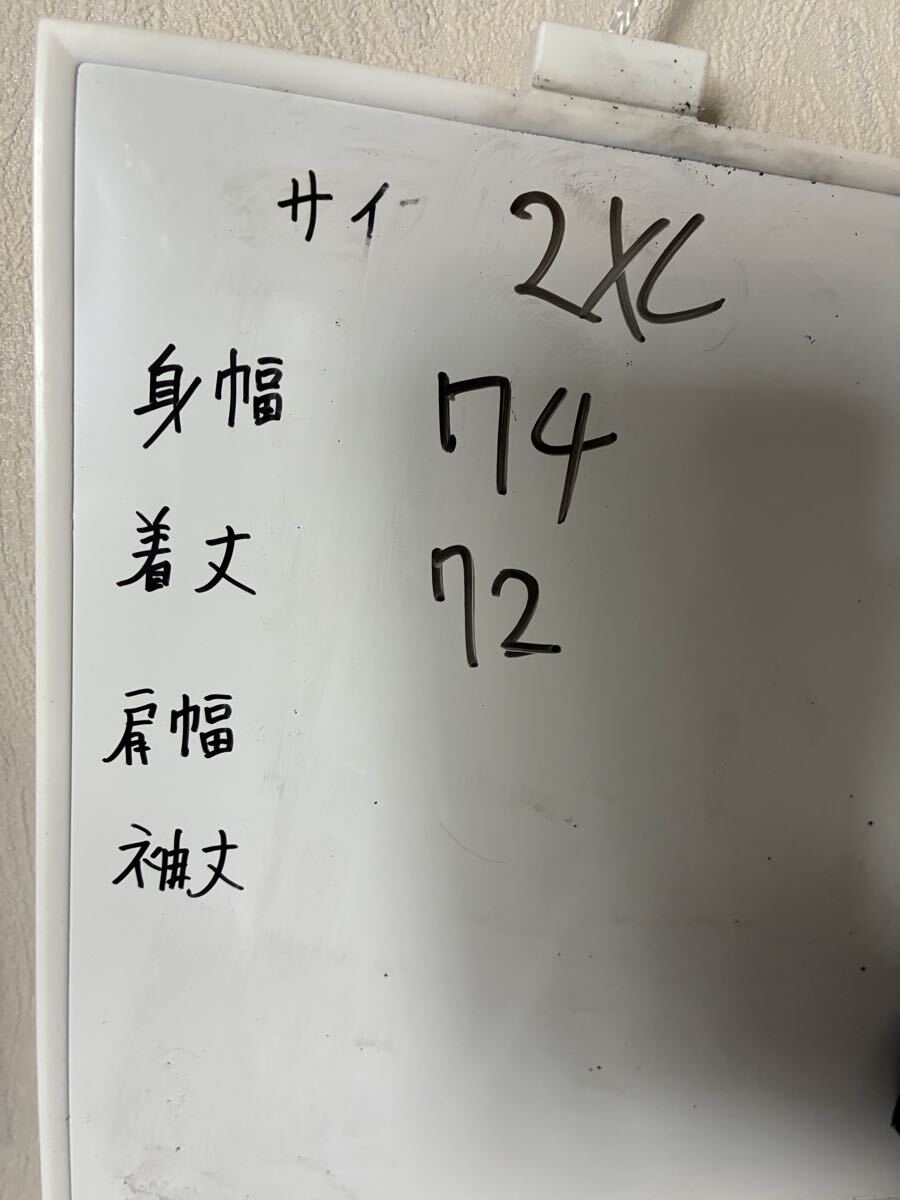 サイ 2XL
身幅 74
着丈 72
肩幅
袖丈